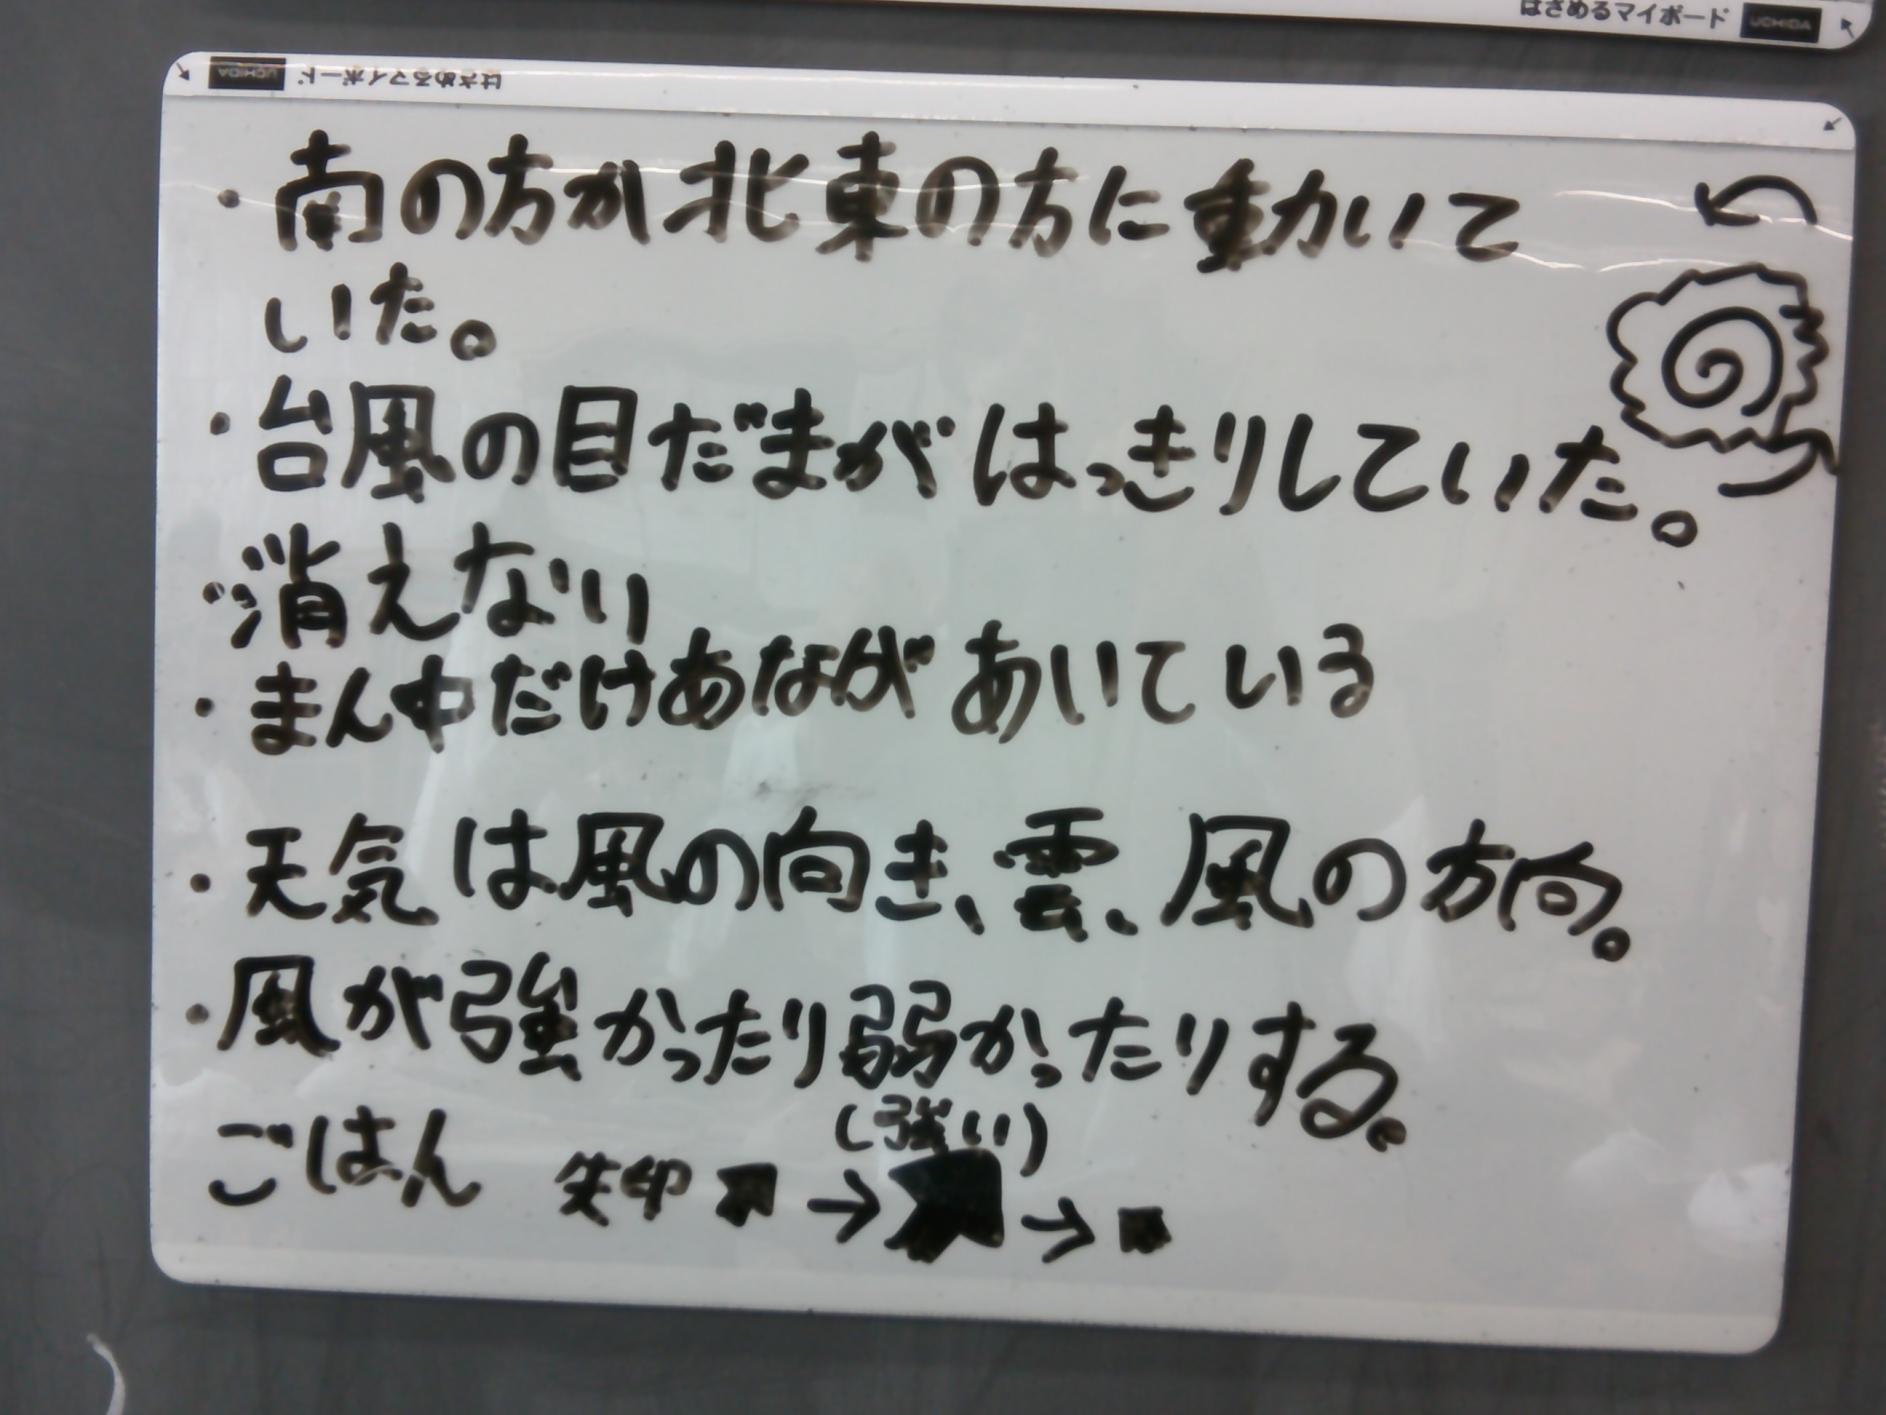 はさめるマイボード UCHIDA
UCHIDA はさめるマイボード
・南の方が北東の方に動いて
いた。
・台風の目だまがはっきりしていた。
・消えない
・まん中だけあながあいている
・天気は風の向き、雲、風の方向。
・風が強かったり弱かったりする。
(強い)
ごはん 矢印 → →